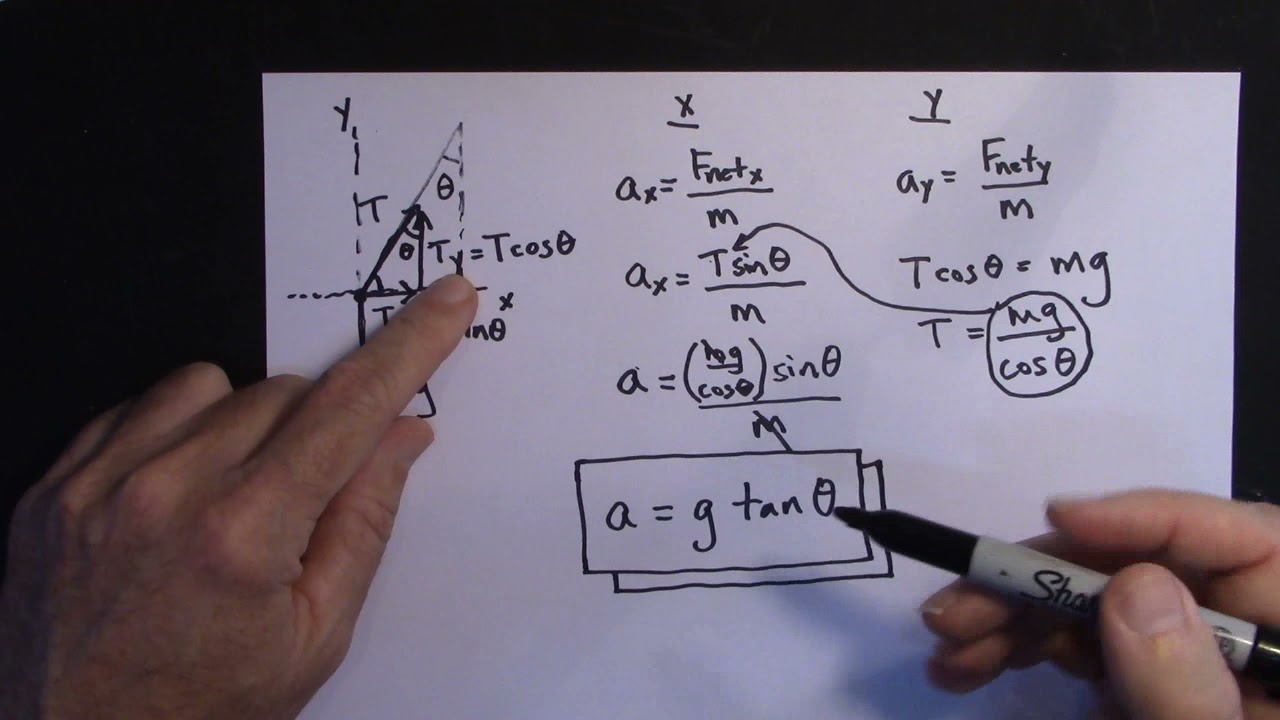 Y
T
θ
θ
Ty = Tcosθ
x
T
inθ
g
x
ax = Fnetx / m
ax = Tsinθ / m
a = (mg / cosθ) sinθ / m
a = g tanθ
Y
ay = Fnety / m
Tcosθ = mg
T = mg / cosθ